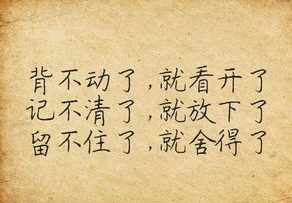 背不动了,就看开了
记不清了,就放下了
留不住了,就舍得了